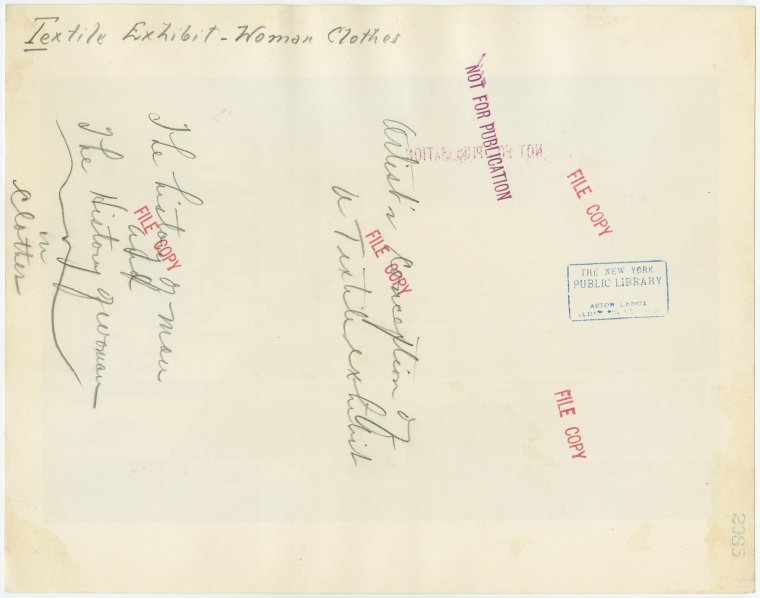 Textile Exhibit - Woman Clothes
NOT FOR PUBLICATION
NOT FOR PUBLICATION
Artist's Conception of
a Textile exhibit
The history of man
and
The History of woman
in
clothes
FILE COPY
FILE COPY
FILE COPY
FILE COPY
THE NEW YORK
PUBLIC LIBRARY
ASTOR LENOX